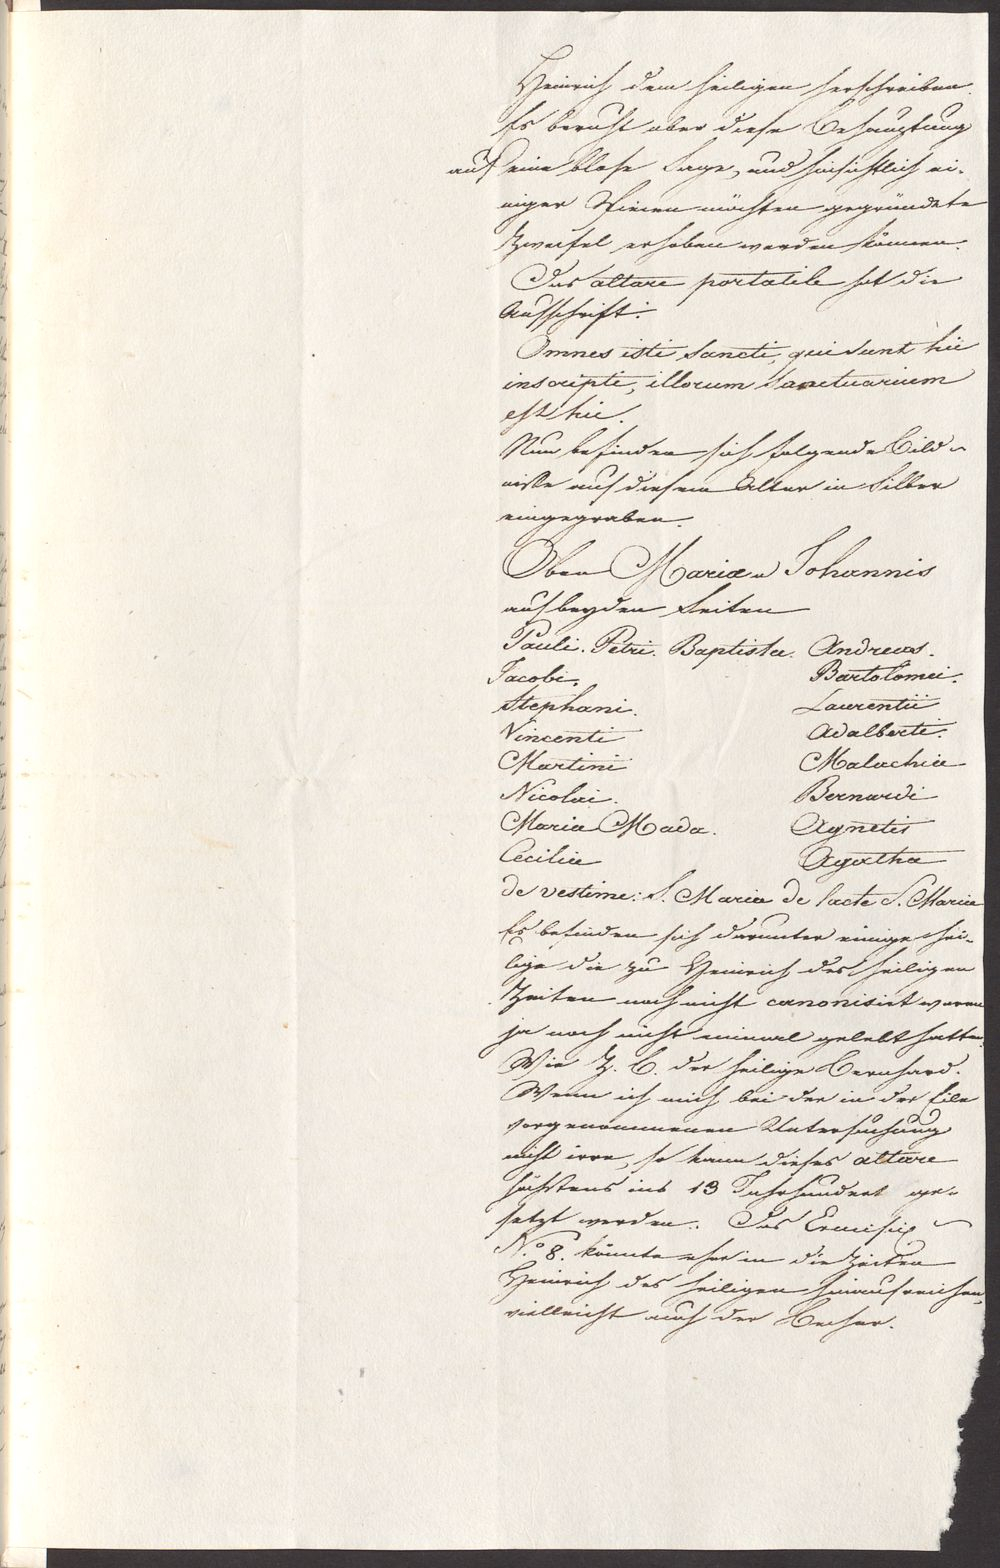 Heinrich dem heiligen herschreiben.
Es beruht aber diese Behauptung
auf eine blose Sage, und hinsichtlich ei-
niger Stücken möchten gegründete
Zweifel erhoben werden können.
Das altare portatile hat die
Aufschrift:
Omnes isti Sancti, qui sunt hic
inscripti, illorum Sanctuarium
est hic.
Nun befinden sich folgende Bild-
niße auf diesem Altar in Silber
eingegraben.
Oben Mariae u Johannis
auf beyden Seiten
Pauli. Petri. Baptista. Andreas.
Jacobi. Bartolomei.
Stephani. Laurentii
Vincenti Adalberti.
Martini Malachie
Nicolai. Bernardi
Maria Mada. Agnetis
Cecilie Agatha
de vestime: S. Marie de lacte S. Marie
Es befinden sich darunter einige hei-
lige die zu Heinrich des heiligen
Zeiten noch nicht canonisirt waren
ja noch nicht einmal gelebt hatten.
Wie Z. B. der heilige Bernhard.
Wenn ich mich bei der in der Eile
vorgenommenen Untersuchung
nicht irre, so kann dieses altare
höchstens ins 13 Jahrhundert ge-
setzt werden. Das Crucifix
N.º 8. könnte eher in die Zeiten
Heinrich des heiligen hinaufreichen,
vielleicht auch der Becher.